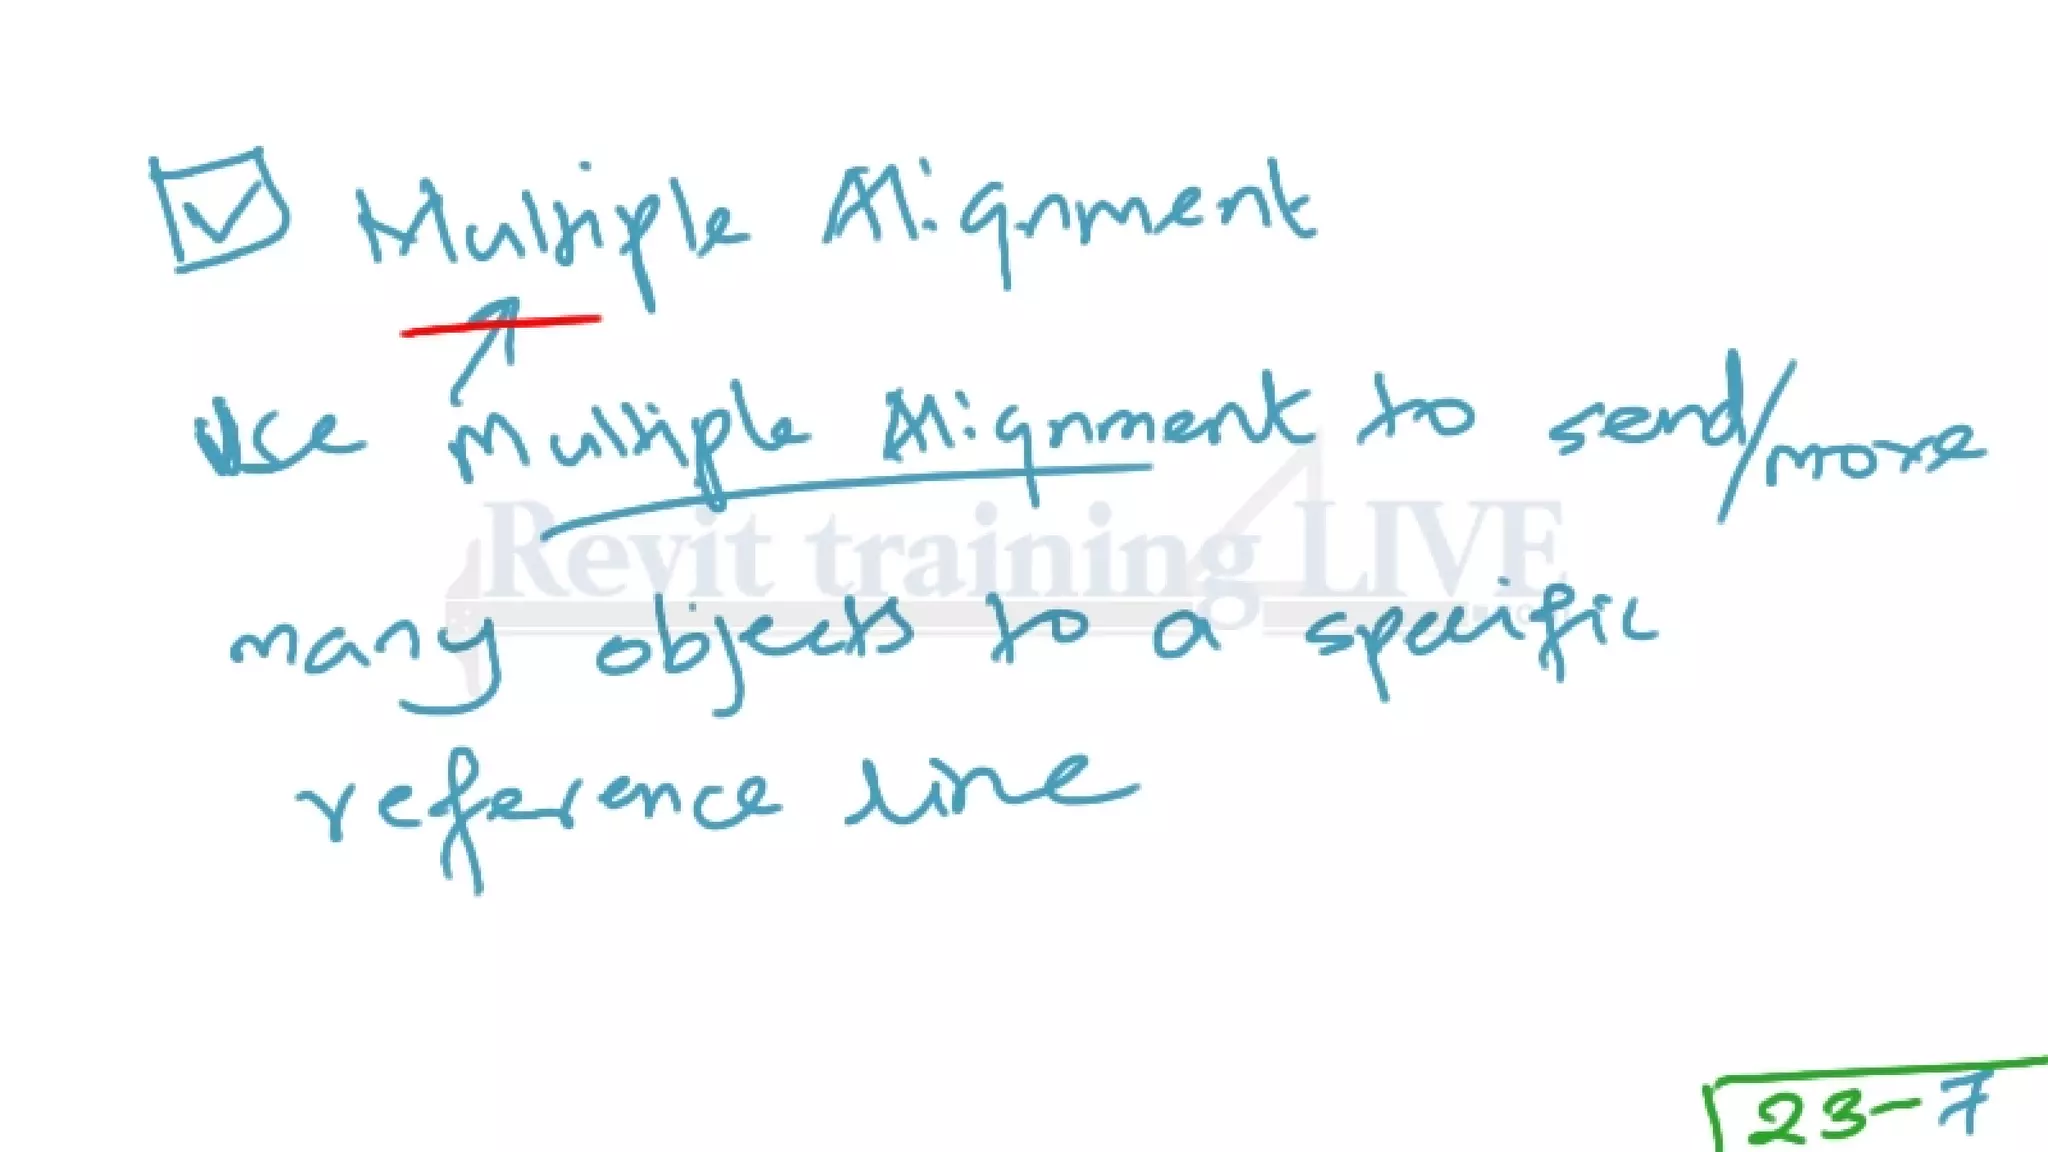 ☑ Multiple Alignment
Use Multiple Alignment to send/more
Revit training LIVE
many objects to a specific
reference line
23-7